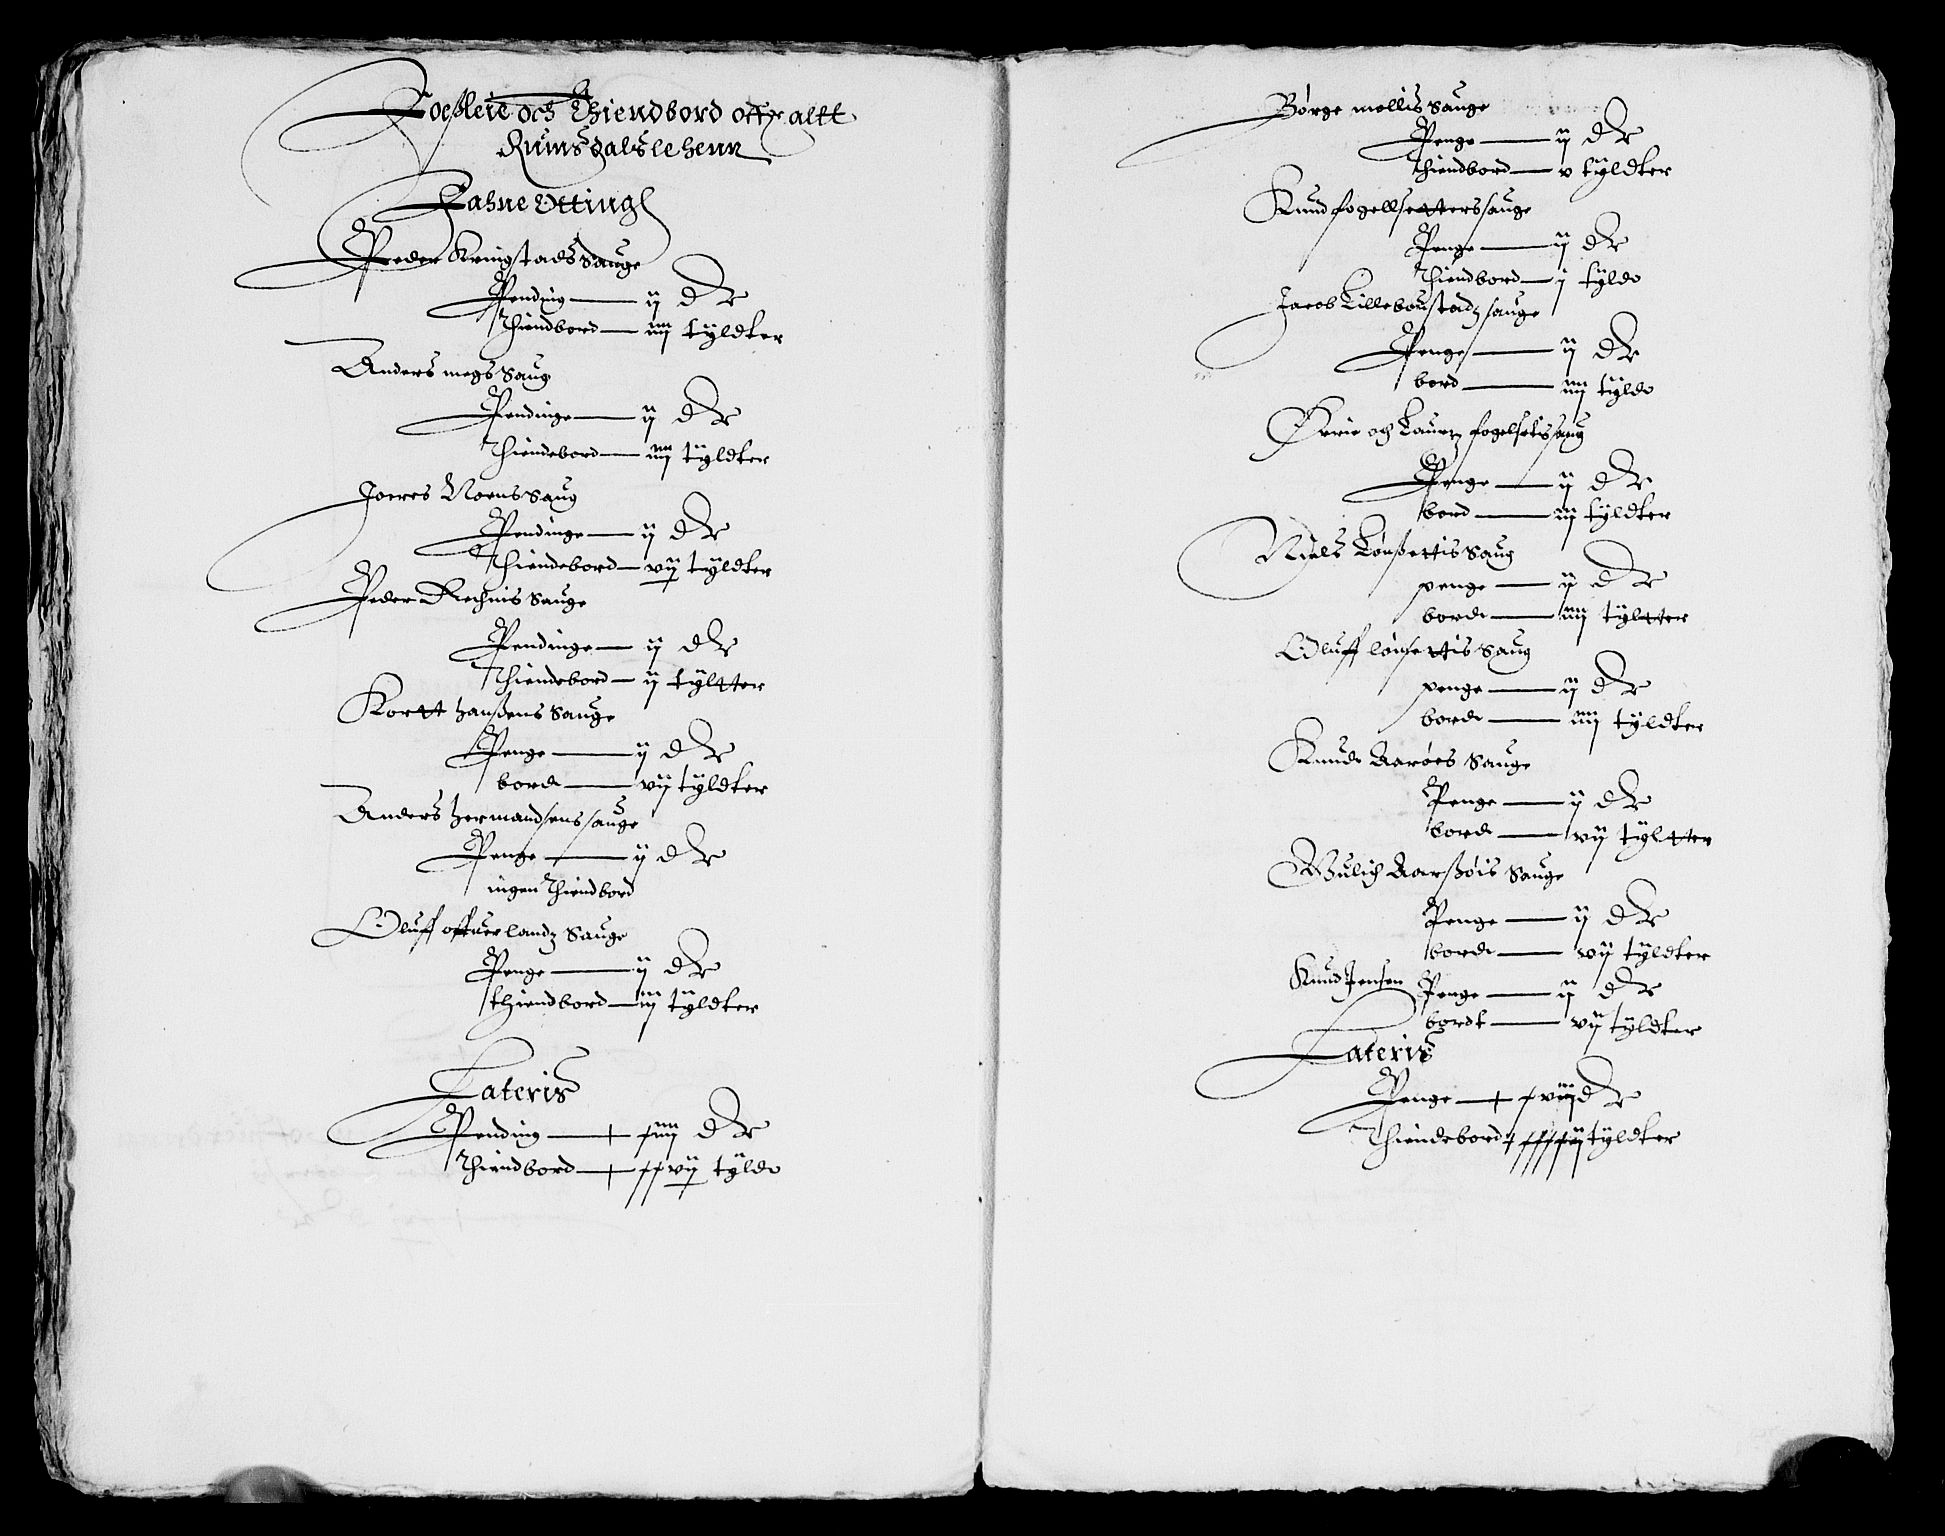 Foeßleie och Thiendbord offr altt
Rumsdalslehenn
Fahne Ottingh
Peder Kringstads Sauge
Pending — ij dr
Thiendbord — iiij tyldter
Anders megs Saug
Pendinge — ij dr
Thiendebord — iiij tyldter
Joeres Noens Saug
Pendinge — ij dr
Thiendebord — vij tyldter
Peder Rechnis Sauge
Pendinge — ij dr
Thiendebord — ij tyltter
Kortt Hanßens Sauge
Penge — ij dr
bord — vij tyldter
Anders Hermandsens sauge
Penge — ij dr
ingen Thiendbord
Oluff offuerlandz Sauge
Penge — ij dr
thiendbord — iij tyldter
Lateris
Pending — xiiij dr
Thiendbord — xxvij tyld
Børge mellis Sauge
Penge — ij dr
Thiendbord — v tyldter
Knud fogellsetters sauge
Penge — ij dr
Thiendbord — j tyld
Jacob Lilleboustadz sauge
Penge — ij dr
bord — iiij tyld
Erric och Lauerz fogelsetis saug
Penge — ij dr
bord — iij tyldter
Niels Lønßettis Saug
penge — ij dr
bord — iiij tyltter
Oluff lønsettis Saug
penge — ij dr
bord — iiij tyldter
Knud Aarøes Sauge
Penge — ij dr
bord — vij tyltter
Wulich Aarßøis Sauge
Penge — ij dr
bord — vij tyldter
Knud Jensen Penge — ij dr
bordt — vij tyldter
Lateris
Penge — xviij dr
Thiendebord xxxxij tyldter